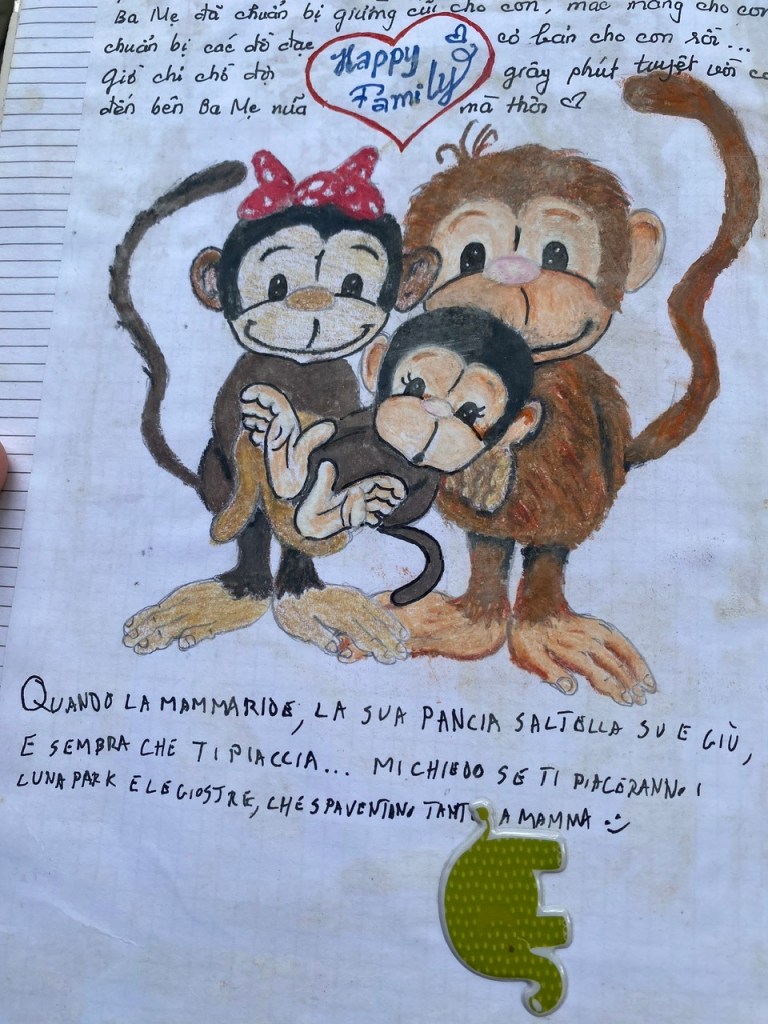 Ba Mẹ đã chuẩn bị giường cũi cho con, mắc màng cho con
chuẩn bị các đồ đạc cơ bản cho con rồi...
Giờ chỉ chờ đợi giây phút tuyệt vời
đến bên Ba Mẹ nữa mà thôi
Happy
Family
QUANDO LA MAMMA RIDE, LA SUA PANCIA SALTELLA SU E GIÙ,
E SEMBRA CHE TI PIACCIA... MI CHIEDO SE TI PIACERANNO I
LUNA PARK E LE GIOSTRE, CHE SPAVENTANO TANTO A MAMMA :)